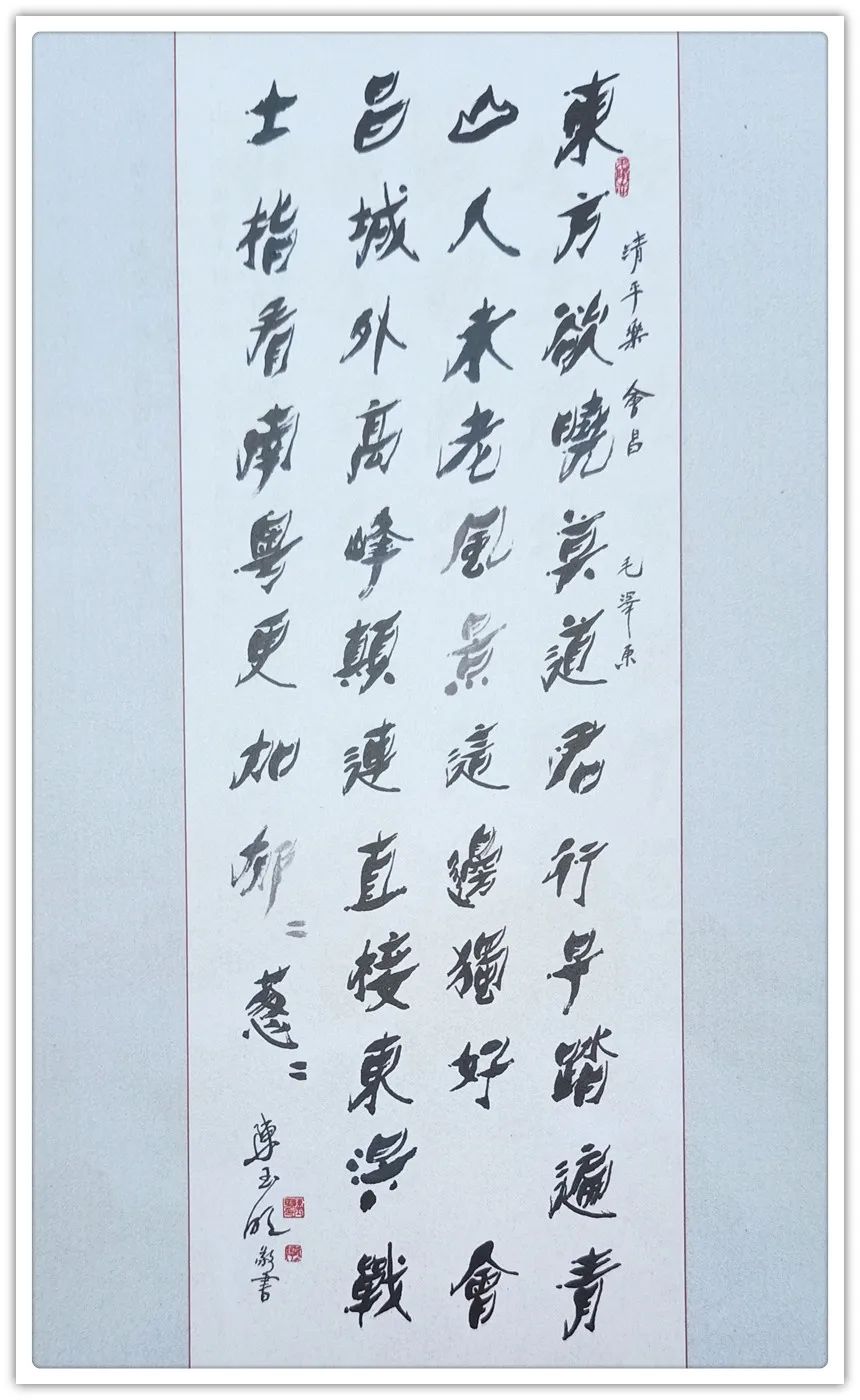 清平樂 會昌 毛澤東
東方欲曉莫道君行早踏遍青
山人未老風景這邊獨好 會
昌城外高峰顛連直接東溟戰
士指看南粵更加郁〻葱〻
陳玉明敬書